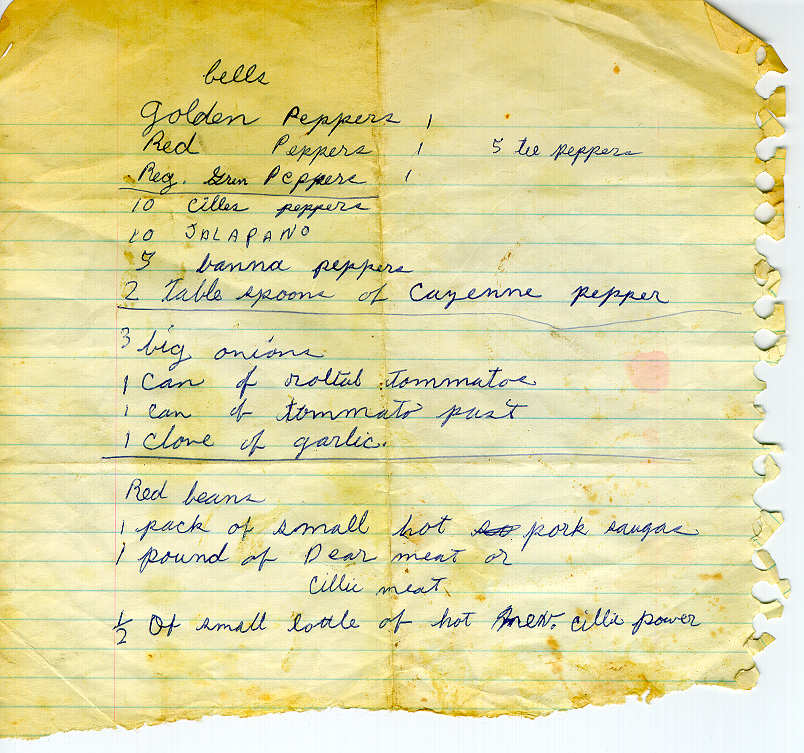 bells
Golden Peppers 1
Red Peppers 1 5 tee peppers
Reg. Gren Peppers 1
10 cilles peppers
10 JALAPANO
5 banna peppers
2 Table spoons of Cayenne pepper
3 big onions
1 Can of tommatos
1 can of tommato past
1 clove of garlic.
Red beans
1 pack of small hot pork saugas
1 pound of Dear meat or
Cillie meat
1/2 Of small bottle of hot Mex. cillie power